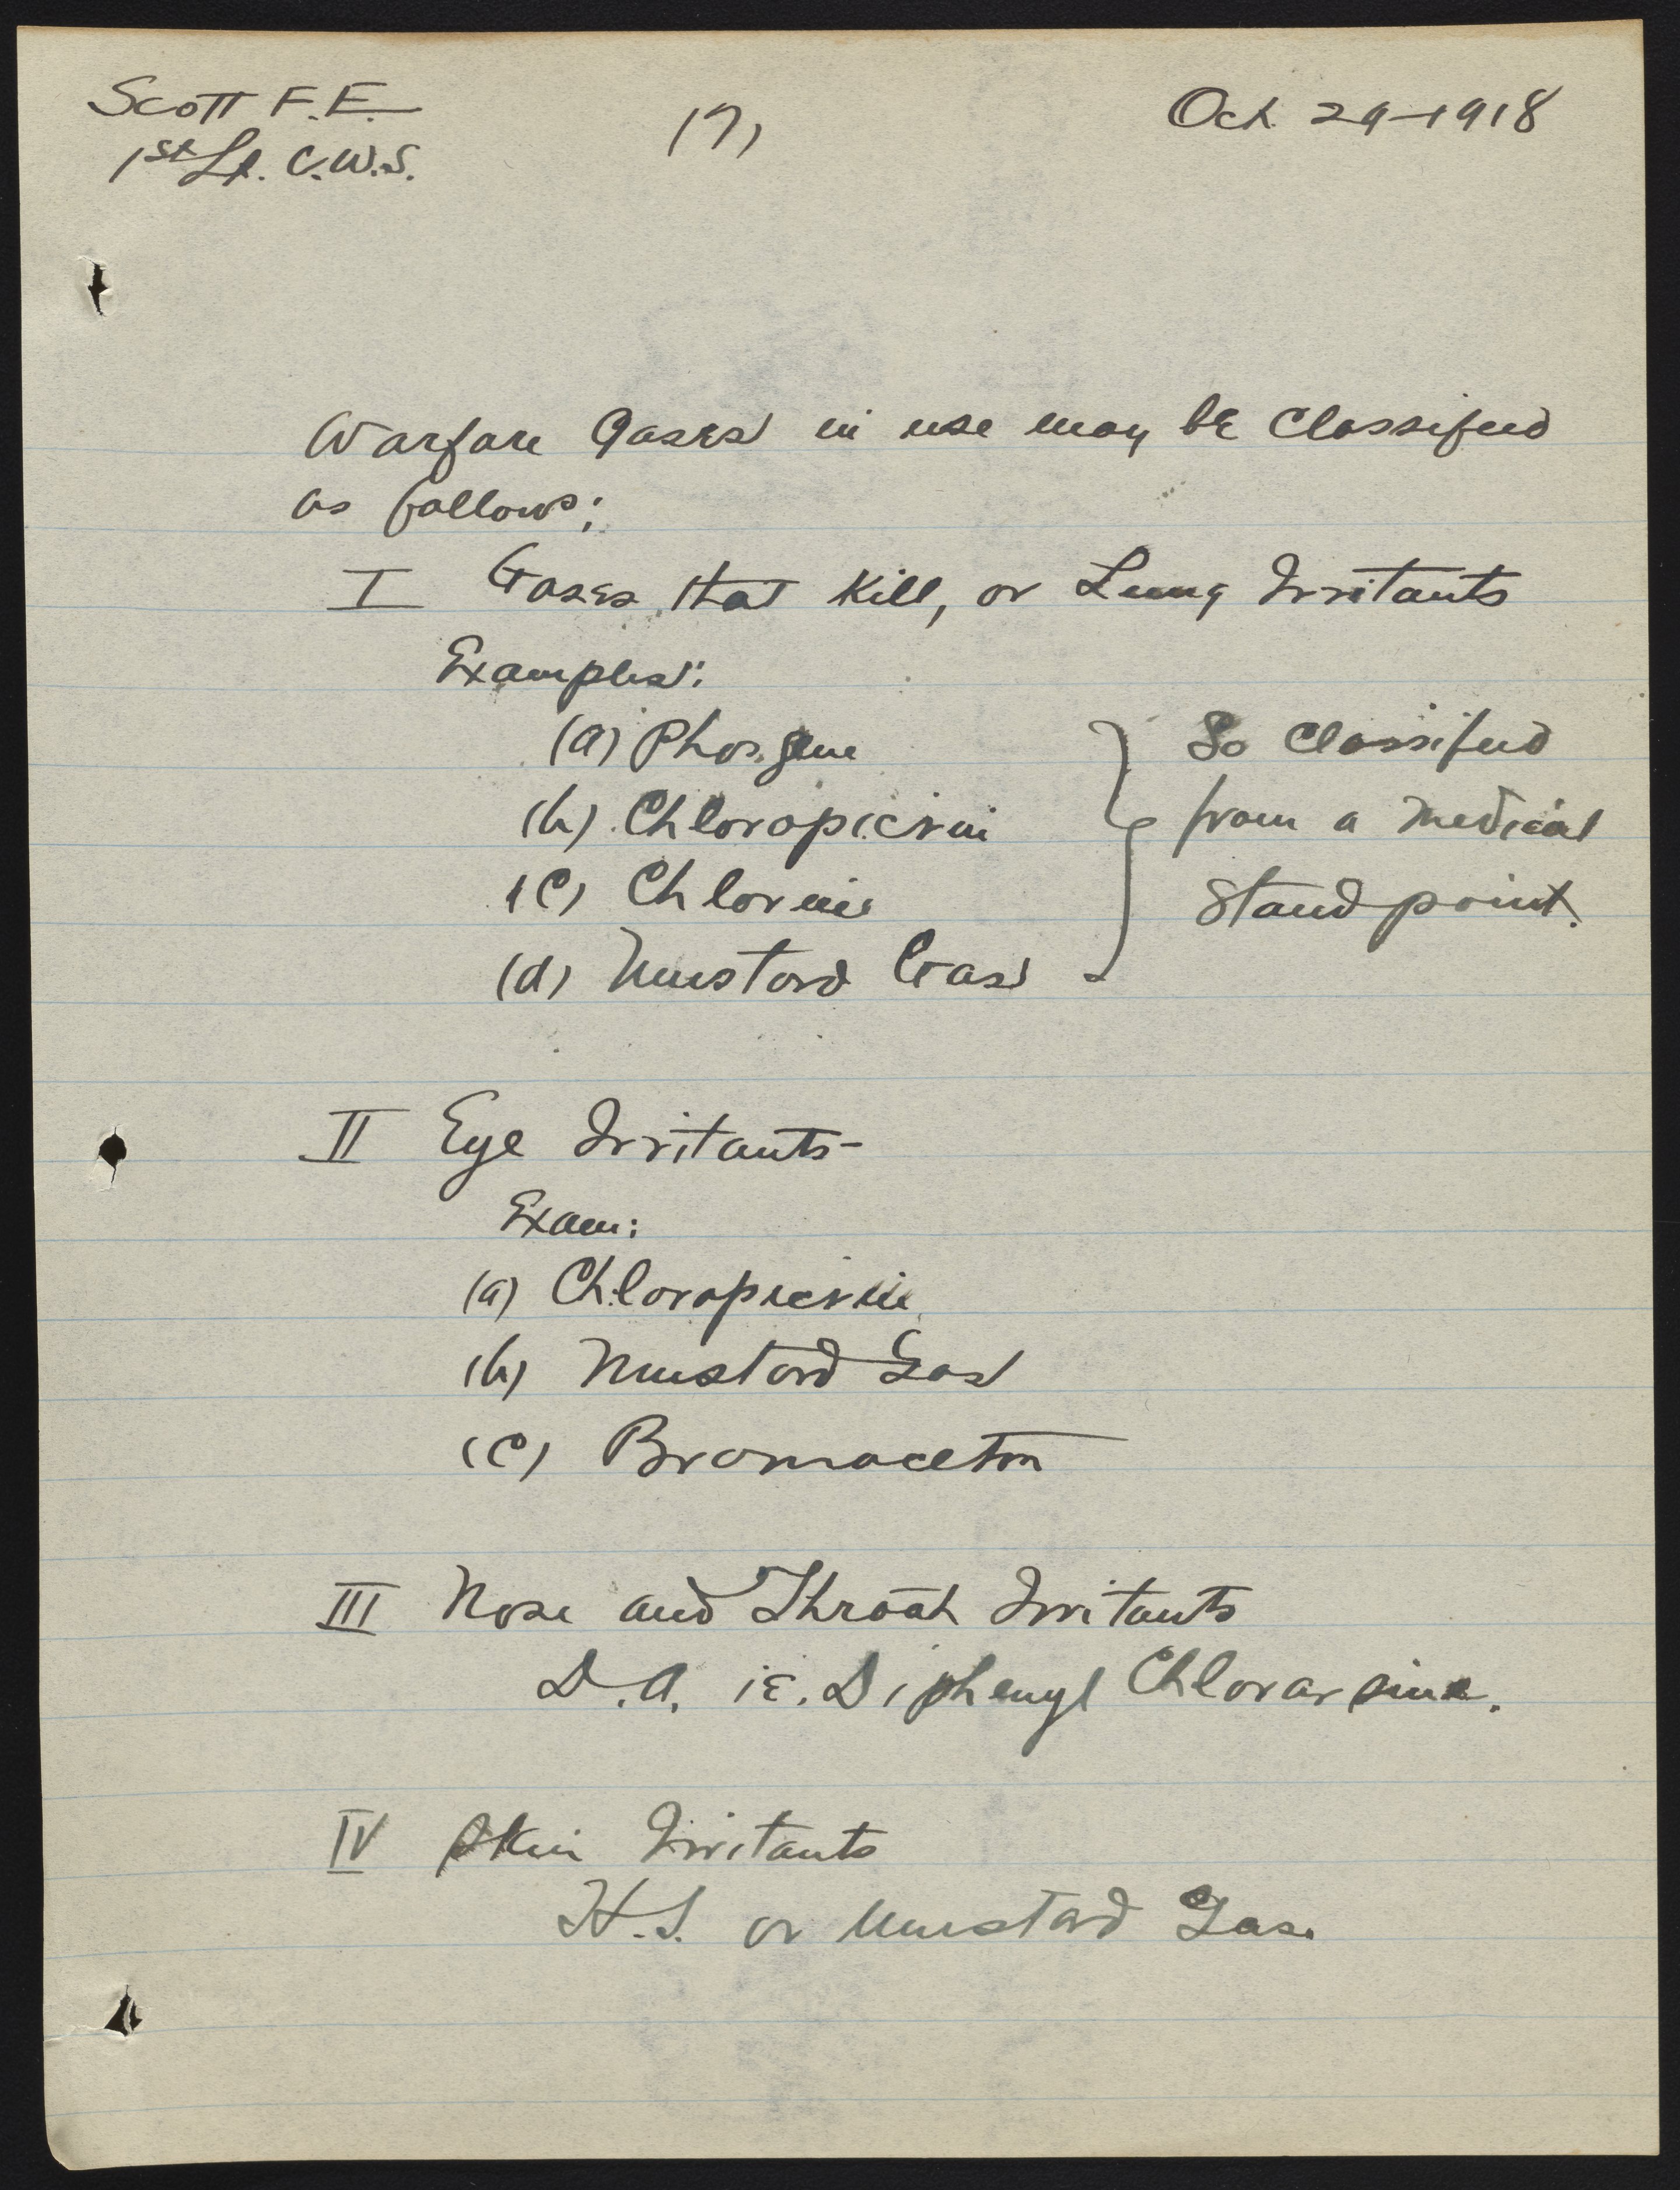 Scott F.E. (7) Oct. 29-1918
1st Lt. C.W.S.
Warfare Gases in use may be Classified
as follows:
I Gases that Kill, or Lung Irritants
Examples:
(a) Phosgene
(b) Chloropicrin
(c) Chlorine
(d) Mustard Gas
So Classified
from a medical
standpoint.
II Eye Irritants-
Exam:
(a) Chloropicrin
(b) Mustard Gas
(c) Bromaceton
III Nose and Throat Irritants
D.A. i.e. Diphenyl Chlorarsine.
IV Skin Irritants
H.S. or Mustard Gas.